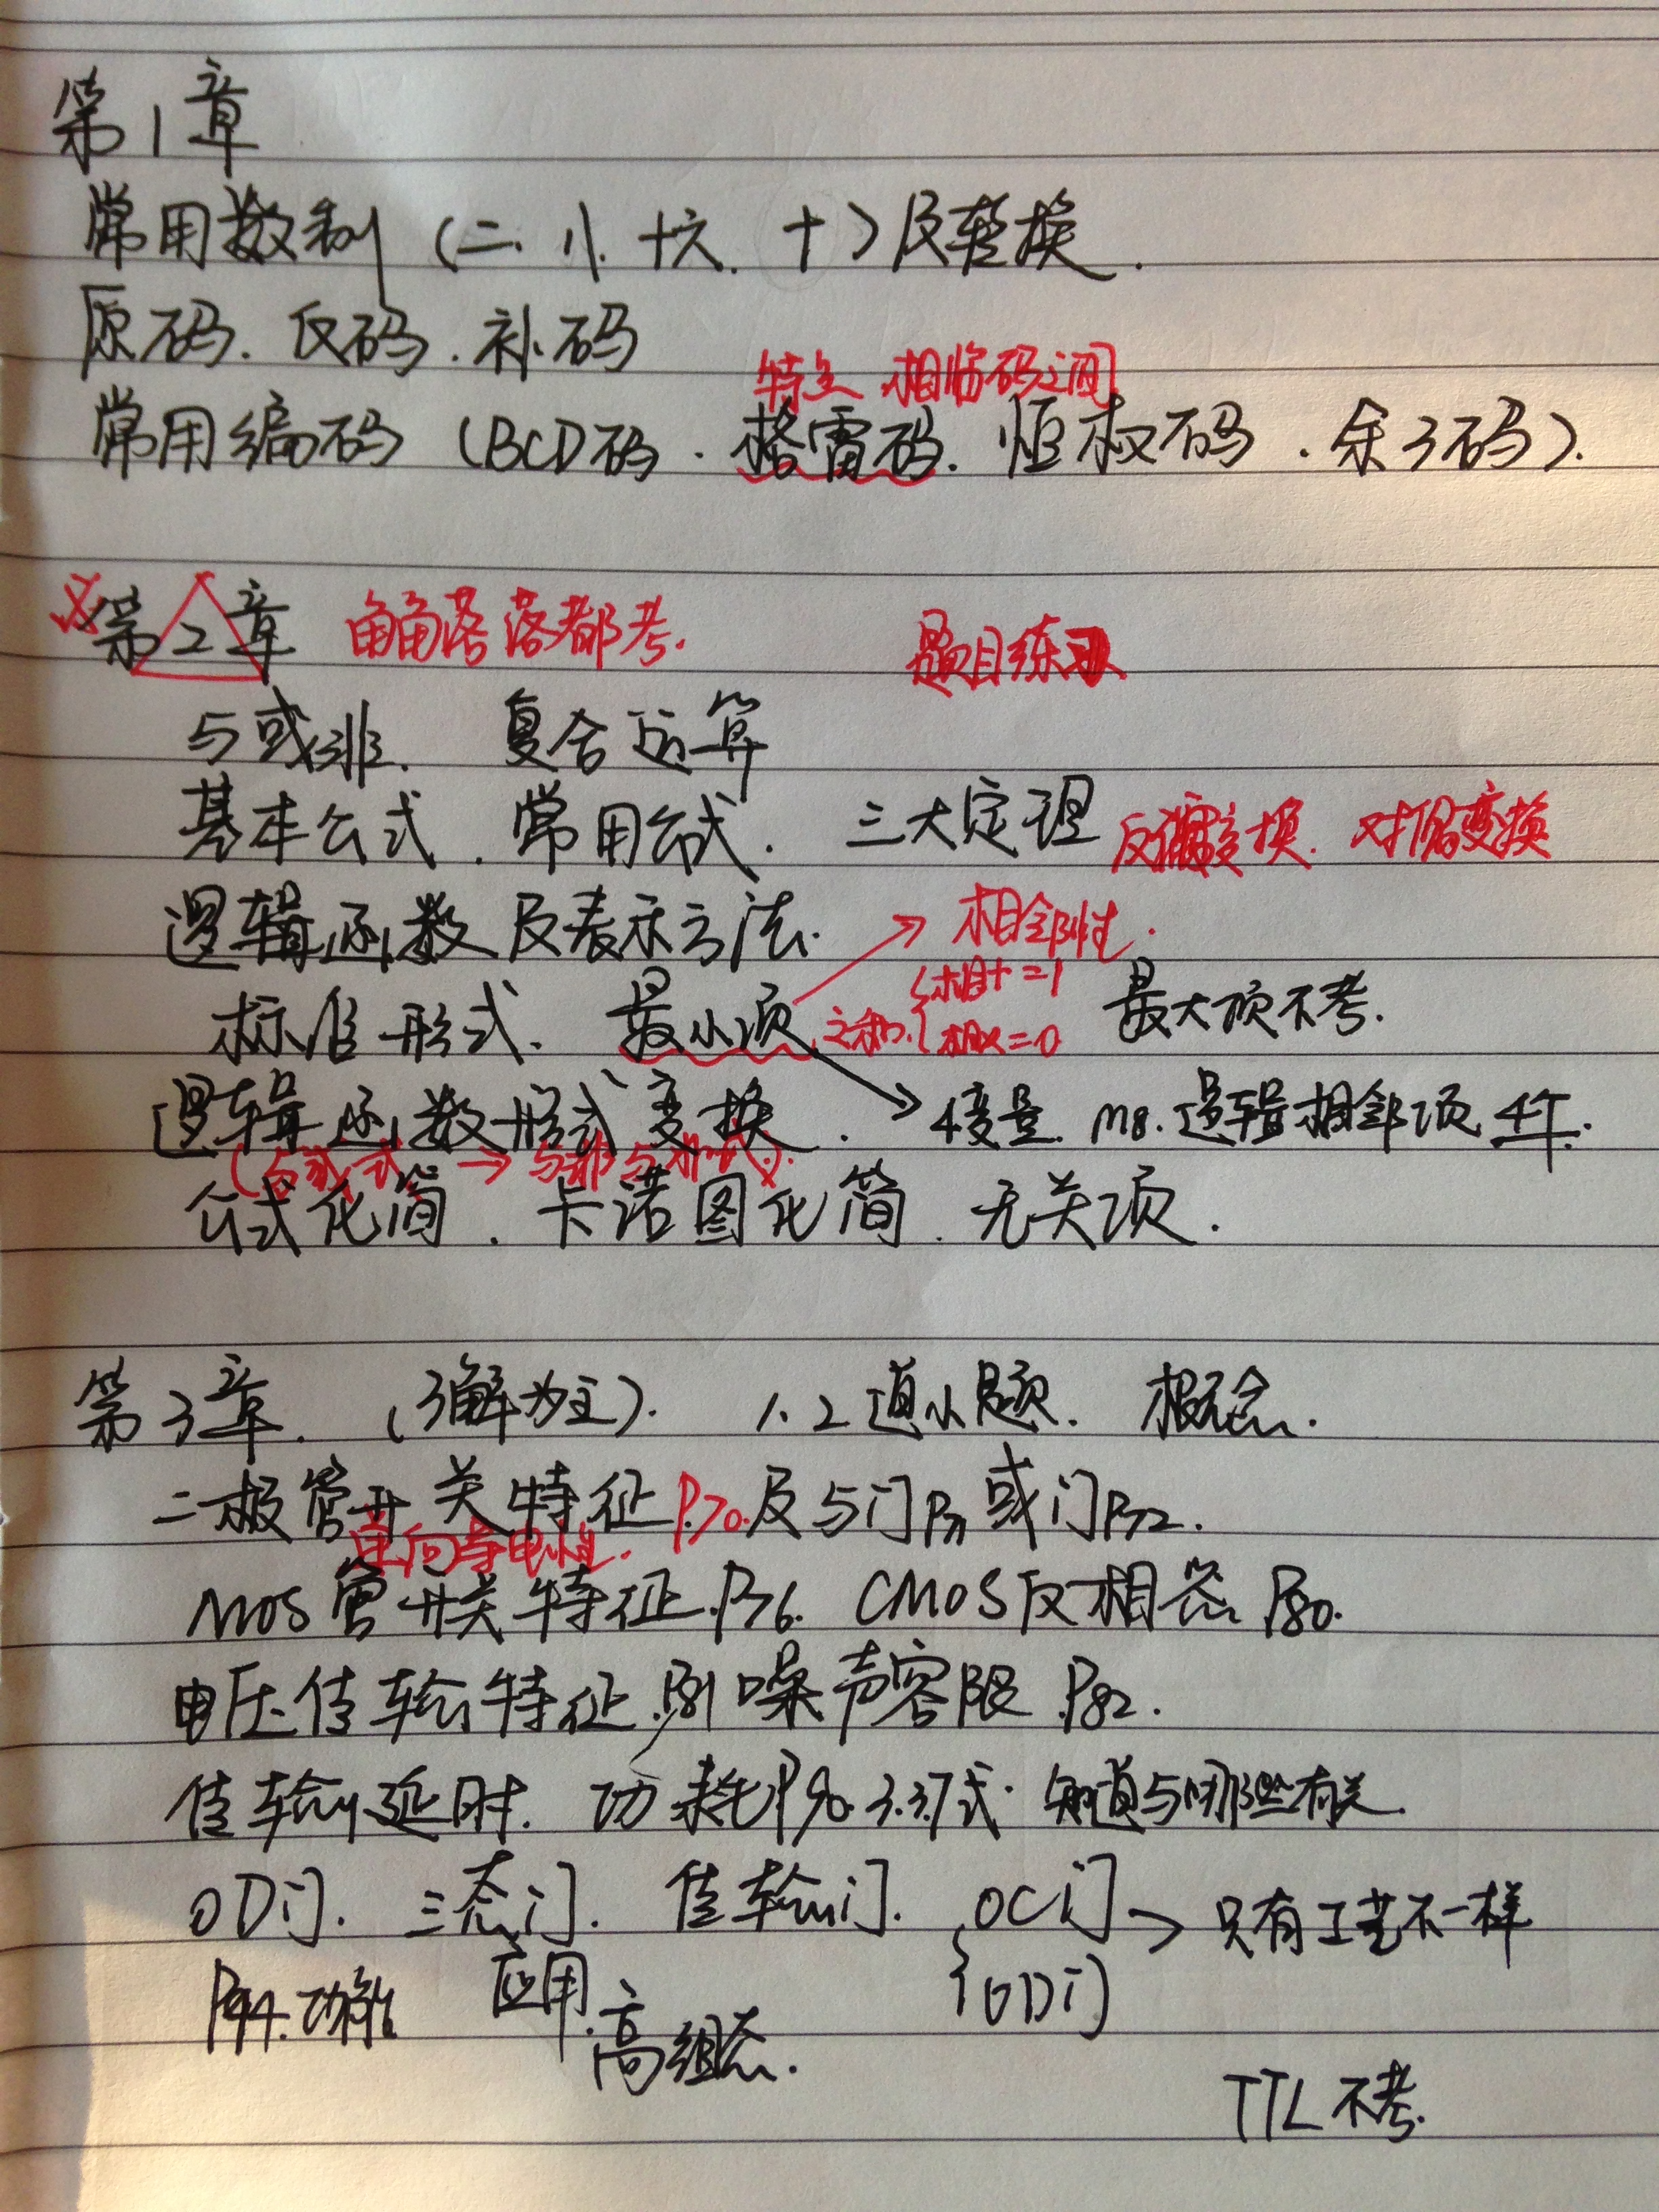 第1章
常用数制（二、八、十六、十）及转换.
原码.反码.补码
特点 相临码之间
常用编码（BCD码.格雷码.恒权码.余3码）.
第2章 角角落落都考. 题目练习
与或非. 复合运算
基本公式.常用公式. 三大定理 反演变换. 对偶变换
逻辑函数及表示方法. → 相邻性.
标准形式. 最小项 之和.{相+=1 相×=0 最大项不考.
逻辑函数形式变换. → 4变量. m8.逻辑相邻项4个.
(与或式 → 与非与非式).
公式化简.卡诺图化简.无关项.
第3章.（了解为主）. 1.2道小题. 概念.
二极管开关特征P70.及与门P71或门P72.
单向导电性.
MOS管开关特征.P76. CMOS反相器P80.
电压传输特征.P81噪声容限.P82.
传输延时. 功耗P90.3.3.7式.知道与哪些有关.
OD门. 三态门. 传输门. {OC门 → 只有工艺不一样
P94.功能 应用. OD门
高组态.
TTL不考.